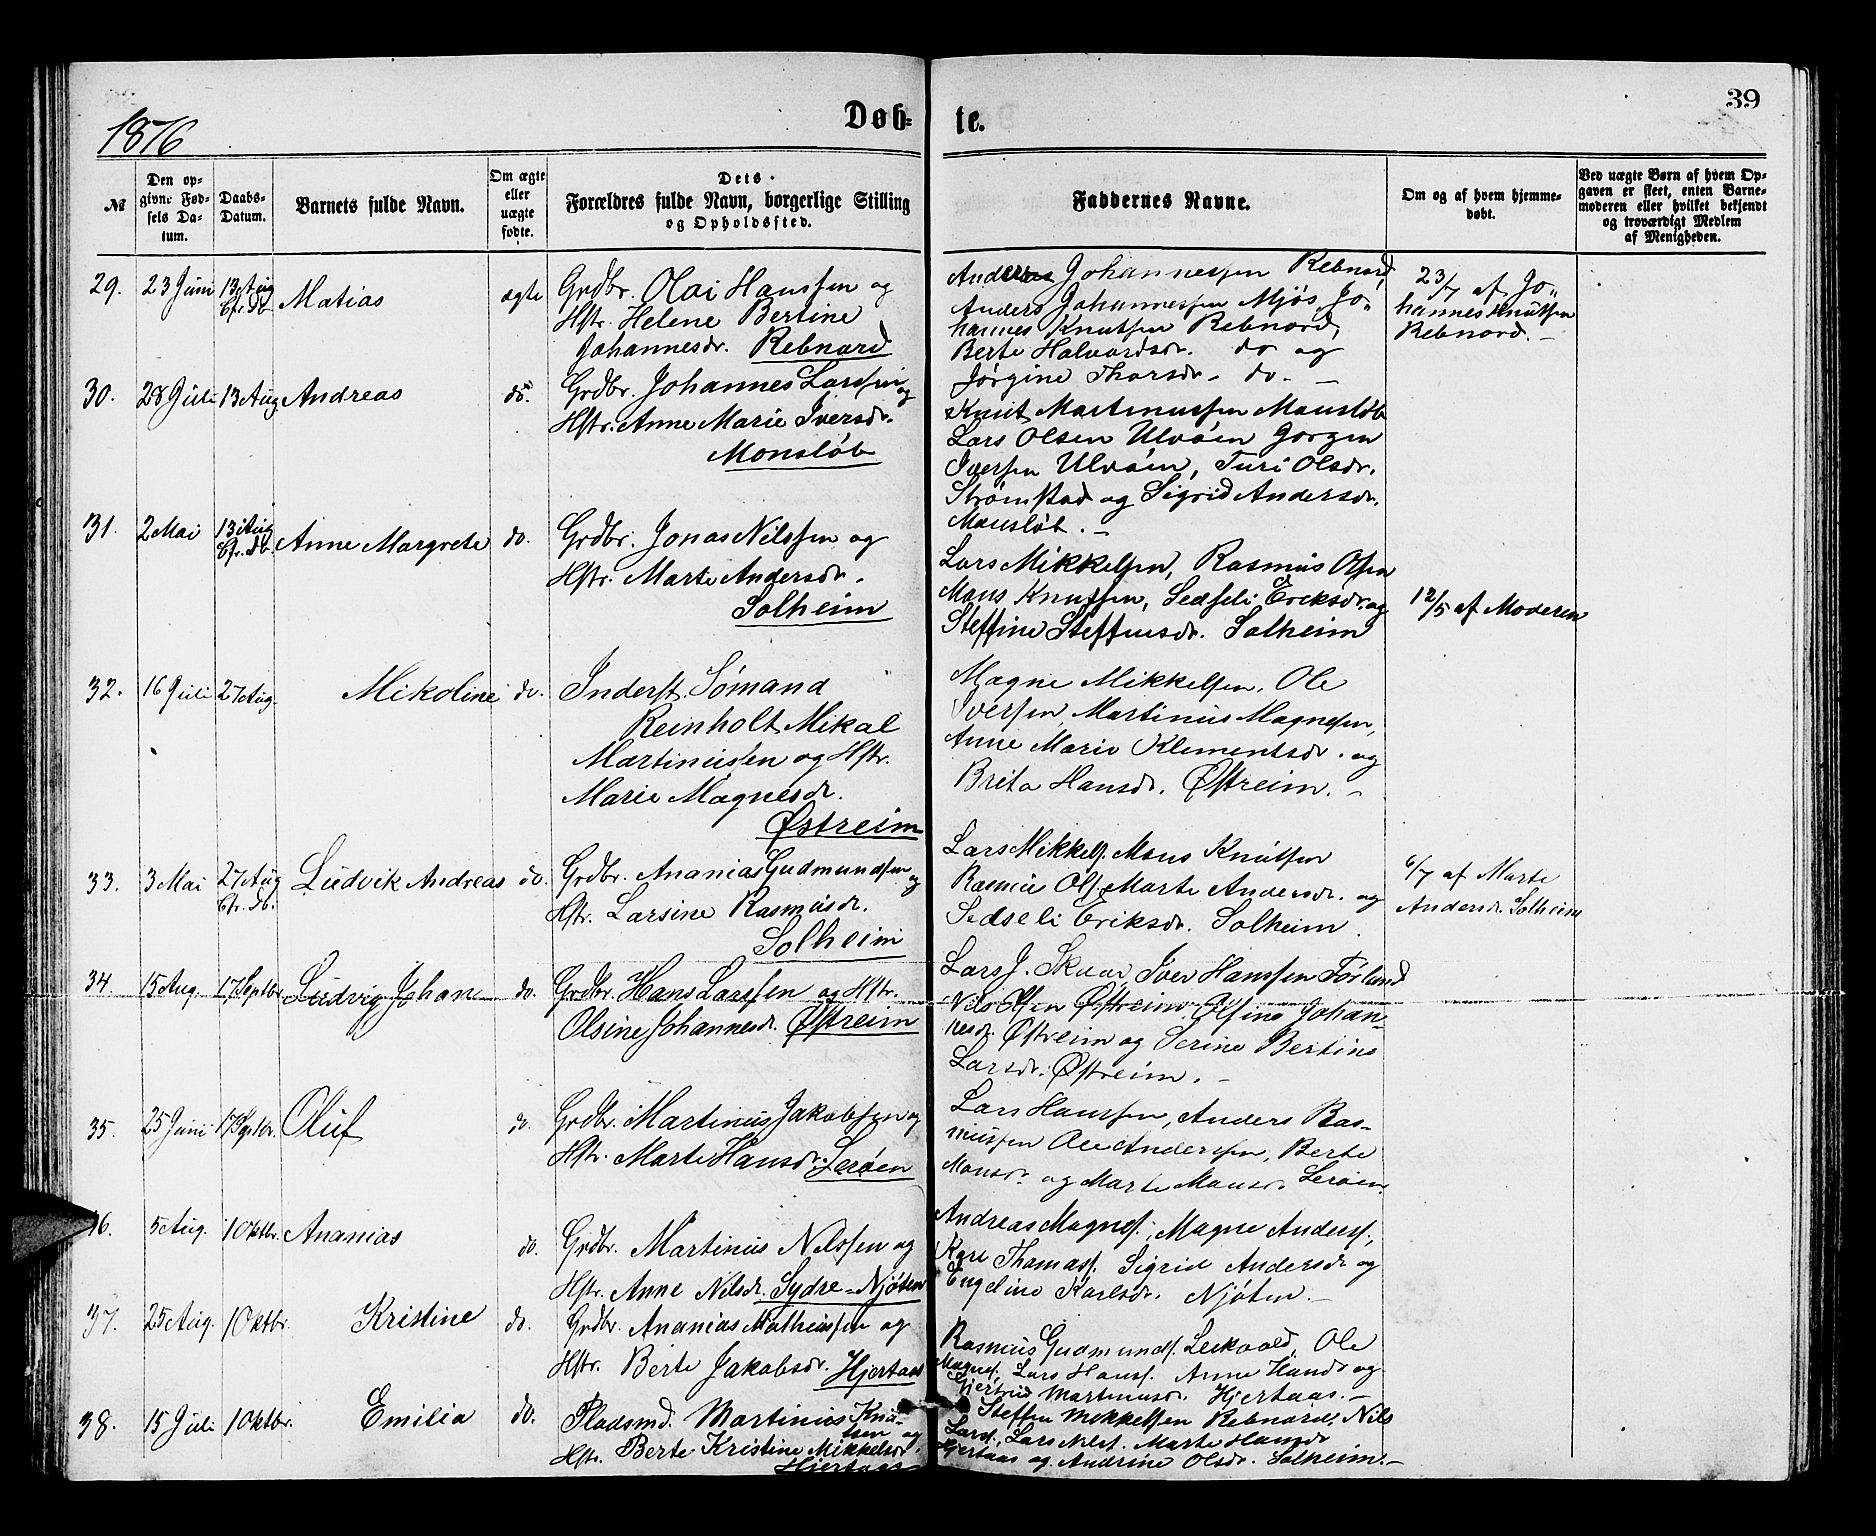 39
1876
Døb- te.
№
Den opgivne Fødsels Datum.
Daabs-Datum.
Barnets fulde Navn.
Om ægte eller uægte fødte.
Dets Forældres fulde Navn, borgerlige Stilling og Opholdssted.
Faddernes Navne.
Om og af hvem hjemmedøbt.
Ved uægte Børn af hvem Opgaven er skeet, enten Barnemoderen eller hvilket bekjendt og troværdigt Medlem af Menigheden.
29. 23 Juni 13 Aug Matias ægte
Grdbr. Olai Hanssen og
Hstr. Helene Bertine
Johannesdr. Rebnord
Johannessen Rebnord
Anders Johannessen Mjøs Jo-
hannes Knutsen Rebnord,
Berte Halvardsdr. do og
Jørgine Thorsdr. do. —
23/7 af Jo-
hannes Knutsen
Rebnord. —
30. 28 Juli 13 Aug Andreas do.
Grdbr. Johannes Larssen og
Hstr. Anne Marie Iversdr.
Monsløb
Knut Martinussen Mansløb
Lars Olsen Ulvøen Jørgen
Iversen Ulvøen, Turi Olsdr.
Strømstad og Sigrid Andersdr.
Mansløb. —
31. 2 Mai 13 Aug Anne Margrete do.
Grdbr. Jonas Nilssen og
Hstr. Marte Andersdr.
Solheim
Lars Mikkelsen, Rasmus Olsen
Mons Knutsen, Sedseli Eriksdr. og
Steffine Steffensdr. Solheim
12/5 af Moderen
32. 16 Juli 27 Aug. Mikoline do.
Inderst. Sømand
Reinholt Mikal
Martinussen og Hstr.
Marie Magnesdr.
Østreim
Magne Mikkelsen, Ole
Iversen, Martinus Magnesen,
Anne Marie Klementsdr. og
Brita Hansdr. Østreim. —
33. 3 Mai 27 Aug Ludvik Andreas do.
Grdbr. Ananias Gudmundsen og
Hstr. Larsine Rasmusdr.
Solheim
Lars Mikkels. Mons Knutsen
Rasmus Ols. Marte Andersdr. og
Sedseli Eriksdr. Solheim.
6/7 af Marte
Andersdr. Solheim
34. 15 Aug. 17 Septbr. Ludvig Johan do.
Grdbr. Hans Larssen og Hstr.
Olsine Johannesdr. Østreim
Lars J. Skaar, Iver Hanssen Førland
Nils Olsen Østreim, Olsine Johan-
nesdr. Østreim og Serine Bertine
Larsdr. Østreim. —
35. 25 Juni 17 Septbr. Oluf do.
Grdbr. Martinus Jakobsen og
Hstr. Marte Hansdr. Lerøen
Lars Hanssen, Anders Ras-
mussen Ole Anderssen, Berte
Monsdr. og Marte Monsdr. Lerøen.
36. 5 Aug. 1 Oktbr. Ananias do.
Grdbr. Martinus Nilssen og
Hstr. Anne Nilsdr. Sydre-Njøten
Andreas Magnes., Magne Anders.,
Kare Thomass. Sigrid Andersdr. og
Engeline Karlsdr. Njøten. —
37. 25 Aug. 1 Oktbr. Kristine do.
Grdbr. Ananias Matheussen og
Hstr. Berte Jakobsdr. Hjertaas
Rasmus Gudmunds. Ole
Magnes., Lars Hans. Anne Hansdr og
Gjertrud Martinusdr. Hjertaas. —
38. 15 Juli 1 Oktbr. Emilia do.
Pladsmd. Martinus Knut-
sen og
Hstr. Berte Kristine Mikkelsdr.
Hjertaas —
Steffen Mikkelsen Rebnord, Nils
Larss., Lars Nilss. Marte Hansdr
Hjertaas og Andrine Olsdr. Solheim. —